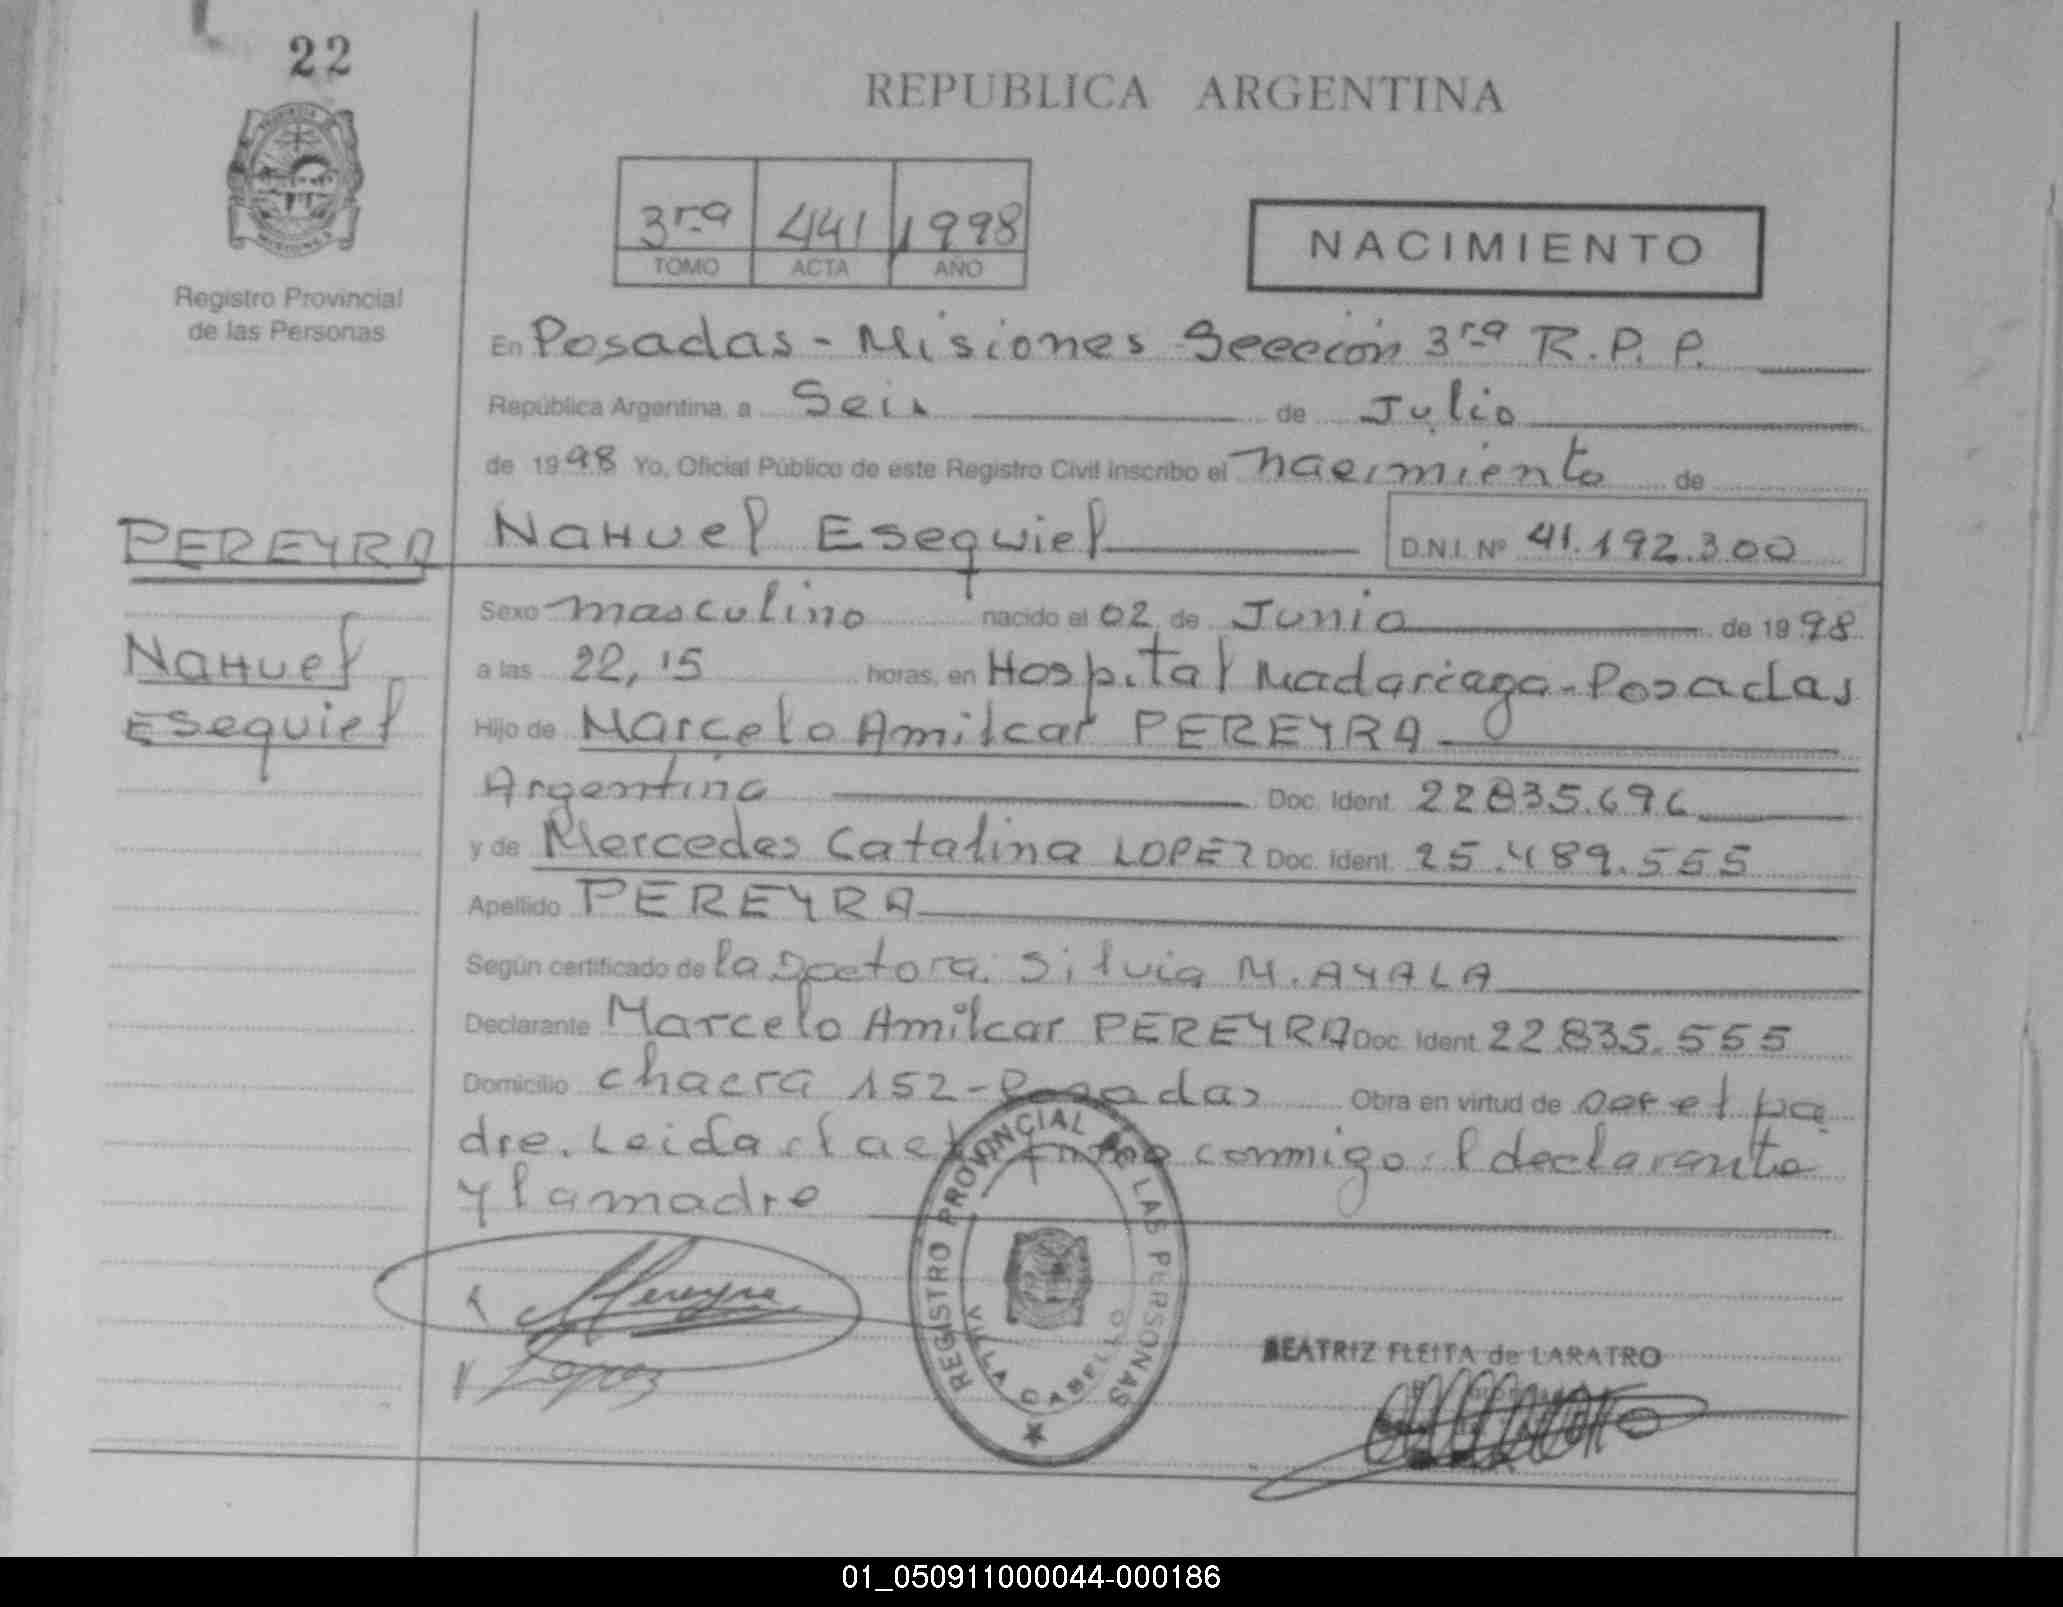 22
REPUBLICA ARGENTINA
3ra 441 1998
TOMO ACTA AÑO
NACIMIENTO
Registro Provincial
de las Personas
En Posadas - Misiones Seccion 3ra R.P.P.
República Argentina, a Seis de Julio
de 1998 Yo, Oficial Público de este Registro Civil inscribo el nacimiento de
PEREYRA Nahuel Esequiel D.N.I. Nº 41.192.300
Sexo masculino nacido el 02 de Junio de 1998
Nahuel
a las 22,15 horas, en Hospital Madariaga - Posadas
Esequiel
Hijo de Marcelo Amilcar PEREYRA
Argentina Doc. Ident. 22835.696
y de Mercedes Catalina LOPEZ Doc. Ident. 25.489.555
Apellido PEREYRA
Según certificado de la Doctora Silvia M. AYALA
Declarante Marcelo Amilcar PEREYRA Doc. Ident 22.835.555
Domicilio chacra 152 - Posadas Obra en virtud de ser el pa
dre. Leida el acta firma conmigo el declarante
y la madre
REGISTRO PROVINCIAL DE LAS PERSONAS
VILLA CABELLO
Pereyra
Lopez
BEATRIZ FLEITA de LARATRO
01_050911000044-000186